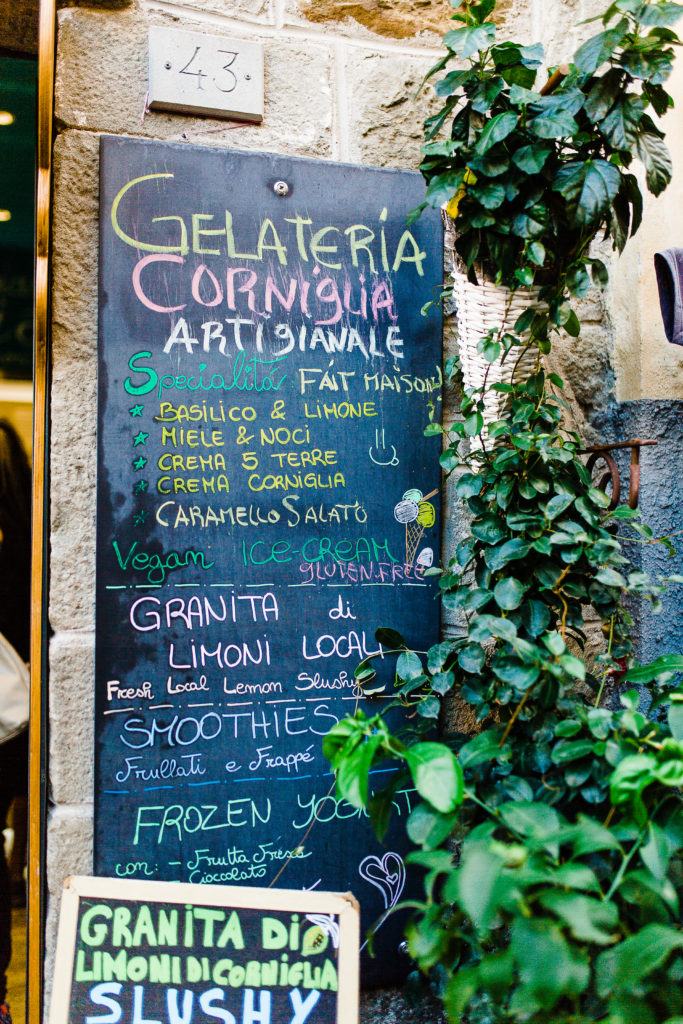 43
GELATERIA
CORNIGLIA
ARTIGIANALE
Specialitá FAIT MAISON
BASILICO & LIMONE
MIELE & NOCI
CREMA 5 TERRE
CREMA CORNIGLIA
CARAMELLO SALATO
VEGAN ICE-CREAM
GLUTEN FREE
GRANITA di
LIMONI LOCALI
Fresh Local Lemon Slushy
SMOOTHIES
Frullati e Frappé
FROZEN YOGURT
con: - Frutta Fresca
Cioccolato
GRANITA DI
LIMONI DI CORNIGLIA
SLUSHY